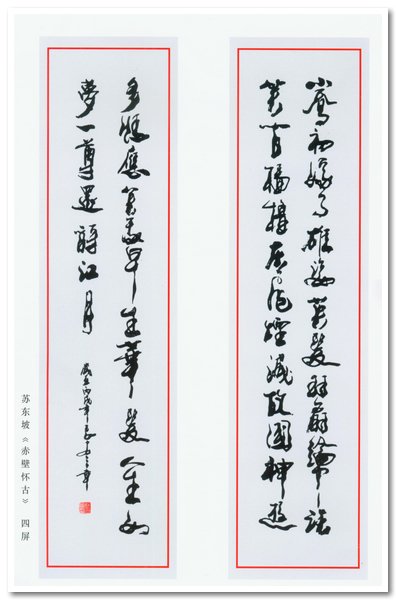 小喬初嫁了雄姿英發羽扇綸巾談
笑間檣櫓灰飛煙滅故國神遊
多情應笑我早生華髮人生如
夢一尊還酹江月
歲在丙戌年
苏东坡《赤壁怀古》四屏